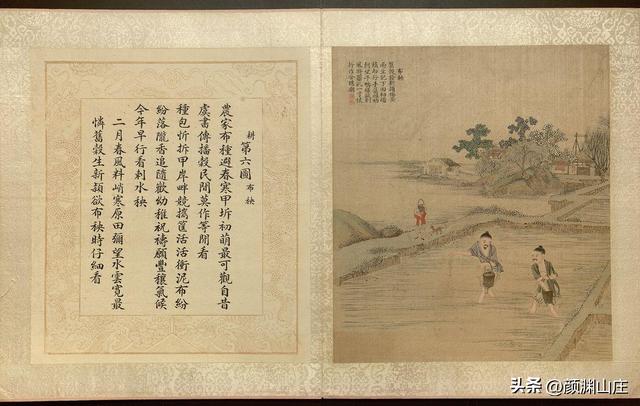 布秧
耕第六圖布秧
農家布種避春寒甲坼初萌最可觀自昔
虞書傳播穀民間莫作等閒看
種包忻拆甲岸畔競攜筐活活衝泥布紛
紛落隴香追隨歡幼稚祝禱願豐穰氣候
今年早行看刺水秧
二月春風料峭寒原田彌望水雲寬最
憐舊穀生新穎欲布秧時仔細看
头条 @颜渊山庄